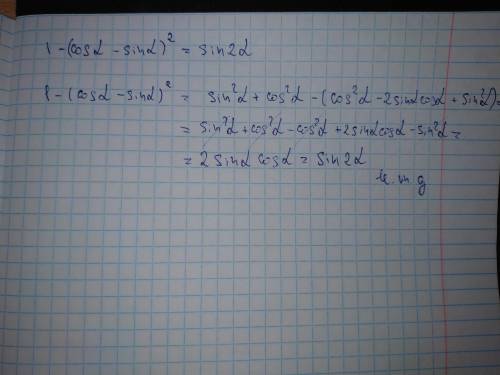 1 - (cosα - sinα)² = sin2α
1 - (cosα - sinα)² = sin²α + cos²α - (cos²α - 2sinαcosα + sin²α) =
= sin²α + cos²α - cos²α + 2sinαcosα - sin²α =
= 2 sinα cosα = sin2α